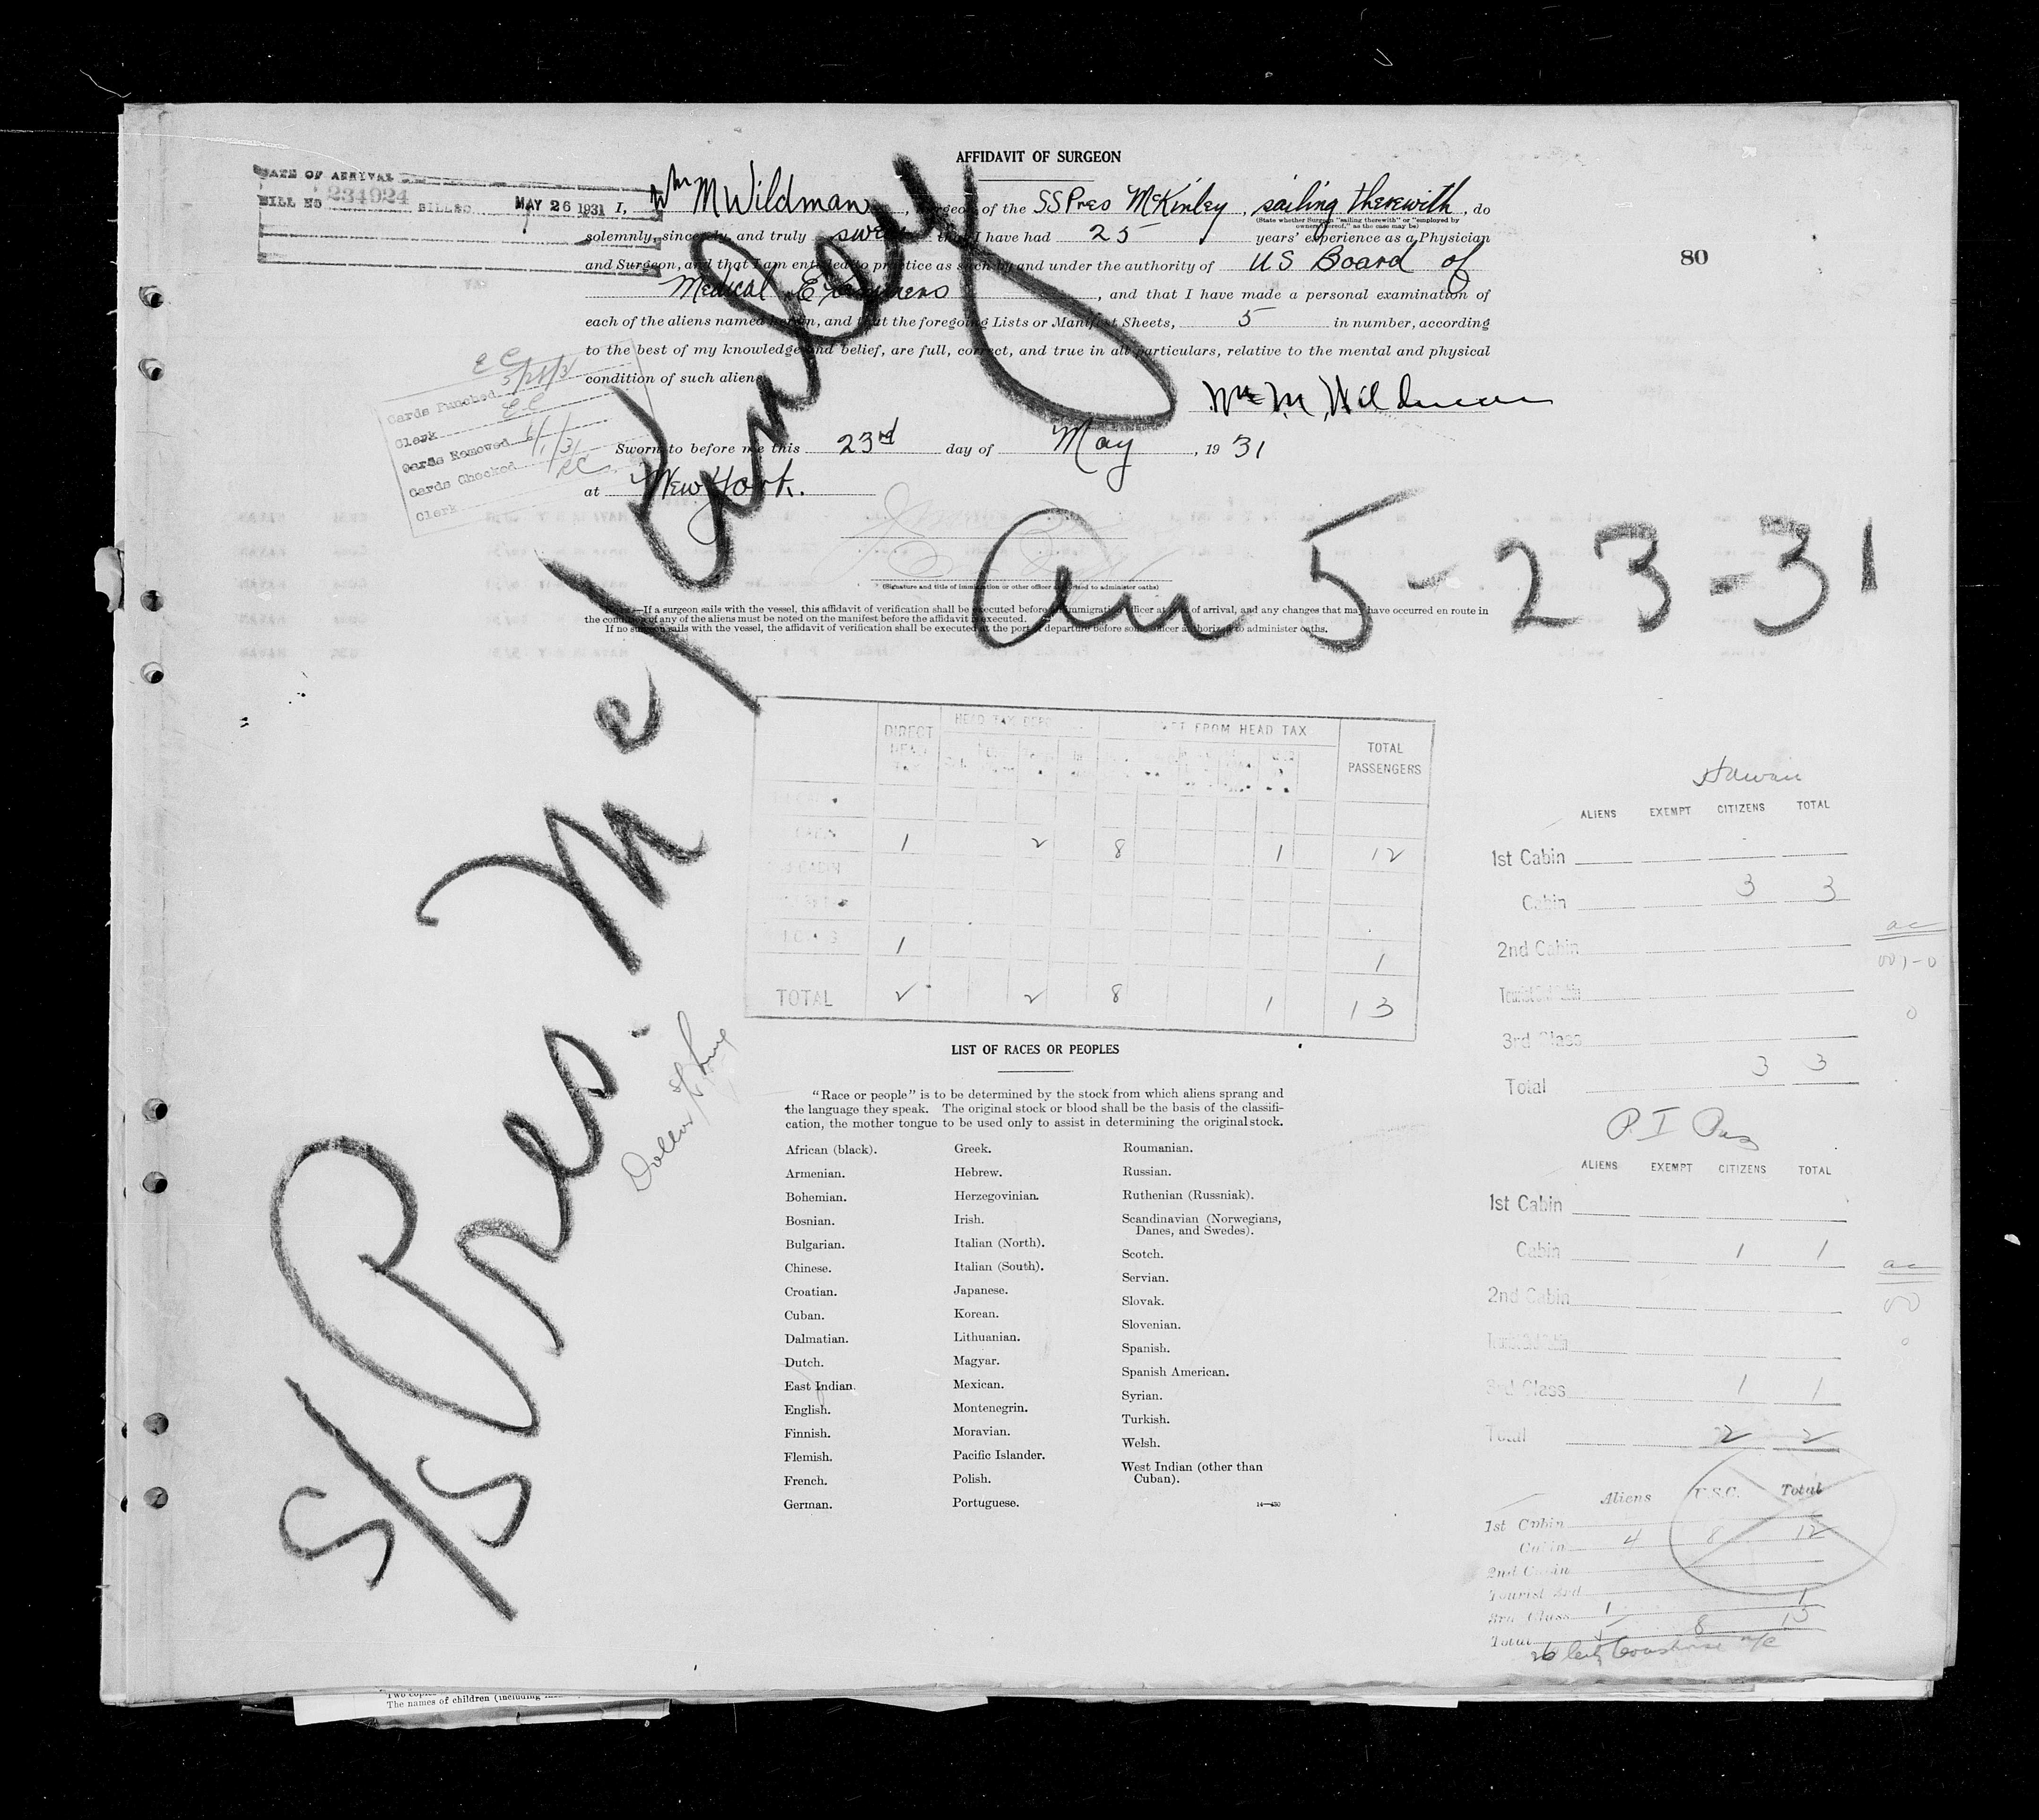 AFFIDAVIT OF SURGEON
DATE OF ARRIVAL
BILL NO 234924 BILLED MAY 26 1931
I, Wm M Wildman, Surgeon of the SS Pres McKinley, sailing therewith, do
(State whether Surgeon "sailing therewith" or "employed by
owners thereof," as the case may be)
solemnly, sincerely, and truly swear that I have had 25 years' experience as a Physician
and Surgeon, and that I am entitled to practice as such by and under the authority of US Board of
Medical Examiners, and that I have made a personal examination of
each of the aliens named herein, and that the foregoing Lists or Manifest Sheets, 5 in number, according
to the best of my knowledge and belief, are full, correct, and true in all particulars, relative to the mental and physical
condition of such aliens.
80
Wm M Wildman
Cards Punched 5/28/31
Clerk EC
Cards Removed 6/1/31
Cards Checked
Clerk
Sworn to before me this 23rd day of May, 1931
at New York.
(Signature and title of immigration or other officer authorized to administer oaths)
NOTE.—If a surgeon sails with the vessel, this affidavit of verification shall be executed before an immigration officer at port of arrival, and any changes that may have occurred en route in
the condition of any of the aliens must be noted on the manifest before the affidavit is executed.
If no surgeon sails with the vessel, the affidavit of verification shall be executed at the port of departure before some officer authorized to administer oaths.
S/S Pres. McKinley
Arr 5-23-31
Dollar SS Line
DIRECT HEAD TAX HEAD TAX DEPO FROM HEAD TAX TOTAL PASSENGERS
CABIN 1 2 8 1 12
1 1
TOTAL 2 2 8 1 13
Hawaii
ALIENS EXEMPT CITIZENS TOTAL
1st Cabin
Cabin 3 3
2nd Cabin
Tourist 3rd Cabin
3rd Class
Total 3 3
P. I. Pas
ALIENS EXEMPT CITIZENS TOTAL
1st Cabin
Cabin 1 1
2nd Cabin
Tourist 3rd Cabin
3rd Class 1 1
Total 2 2
Aliens U.S.C. Total
1st Cabin
Cabin 4 8 12
2nd Cabin
Tourist 3rd
3rd Class 1 1
Total 5 8 13
LIST OF RACES OR PEOPLES
"Race or people" is to be determined by the stock from which aliens sprang and
the language they speak. The original stock or blood shall be the basis of the classifi-
cation, the mother tongue to be used only to assist in determining the original stock.
African (black).
Armenian.
Bohemian.
Bosnian.
Bulgarian.
Chinese.
Croatian.
Cuban.
Dalmatian.
Dutch.
East Indian.
English.
Finnish.
Flemish.
French.
German.
Greek.
Hebrew.
Herzegovinian.
Irish.
Italian (North).
Italian (South).
Japanese.
Korean.
Lithuanian.
Magyar.
Mexican.
Montenegrin.
Moravian.
Pacific Islander.
Polish.
Portuguese.
Roumanian.
Russian.
Ruthenian (Russniak).
Scandinavian (Norwegians,
Danes, and Swedes).
Scotch.
Servian.
Slovak.
Slovenian.
Spanish.
Spanish American.
Syrian.
Turkish.
Welsh.
West Indian (other than
Cuban).
14—430
The names of children